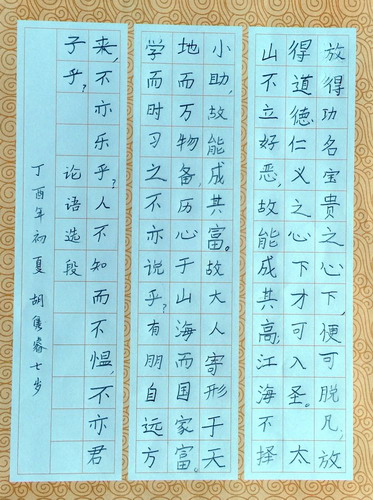 放得功名宝贵之心下,便可脱凡,放
得道德、仁义之心下才可入圣。太
山不立好恶,故能成其高;江海不择
小助,故能成其富。故大人寄形于天
地而万物备,历心于山海而国家富。
学而时习之不亦说乎?有朋自远方
来,不亦乐乎?人不知而不愠,不亦君
子乎?
论语选段
丁酉年初夏 胡隽睿七岁